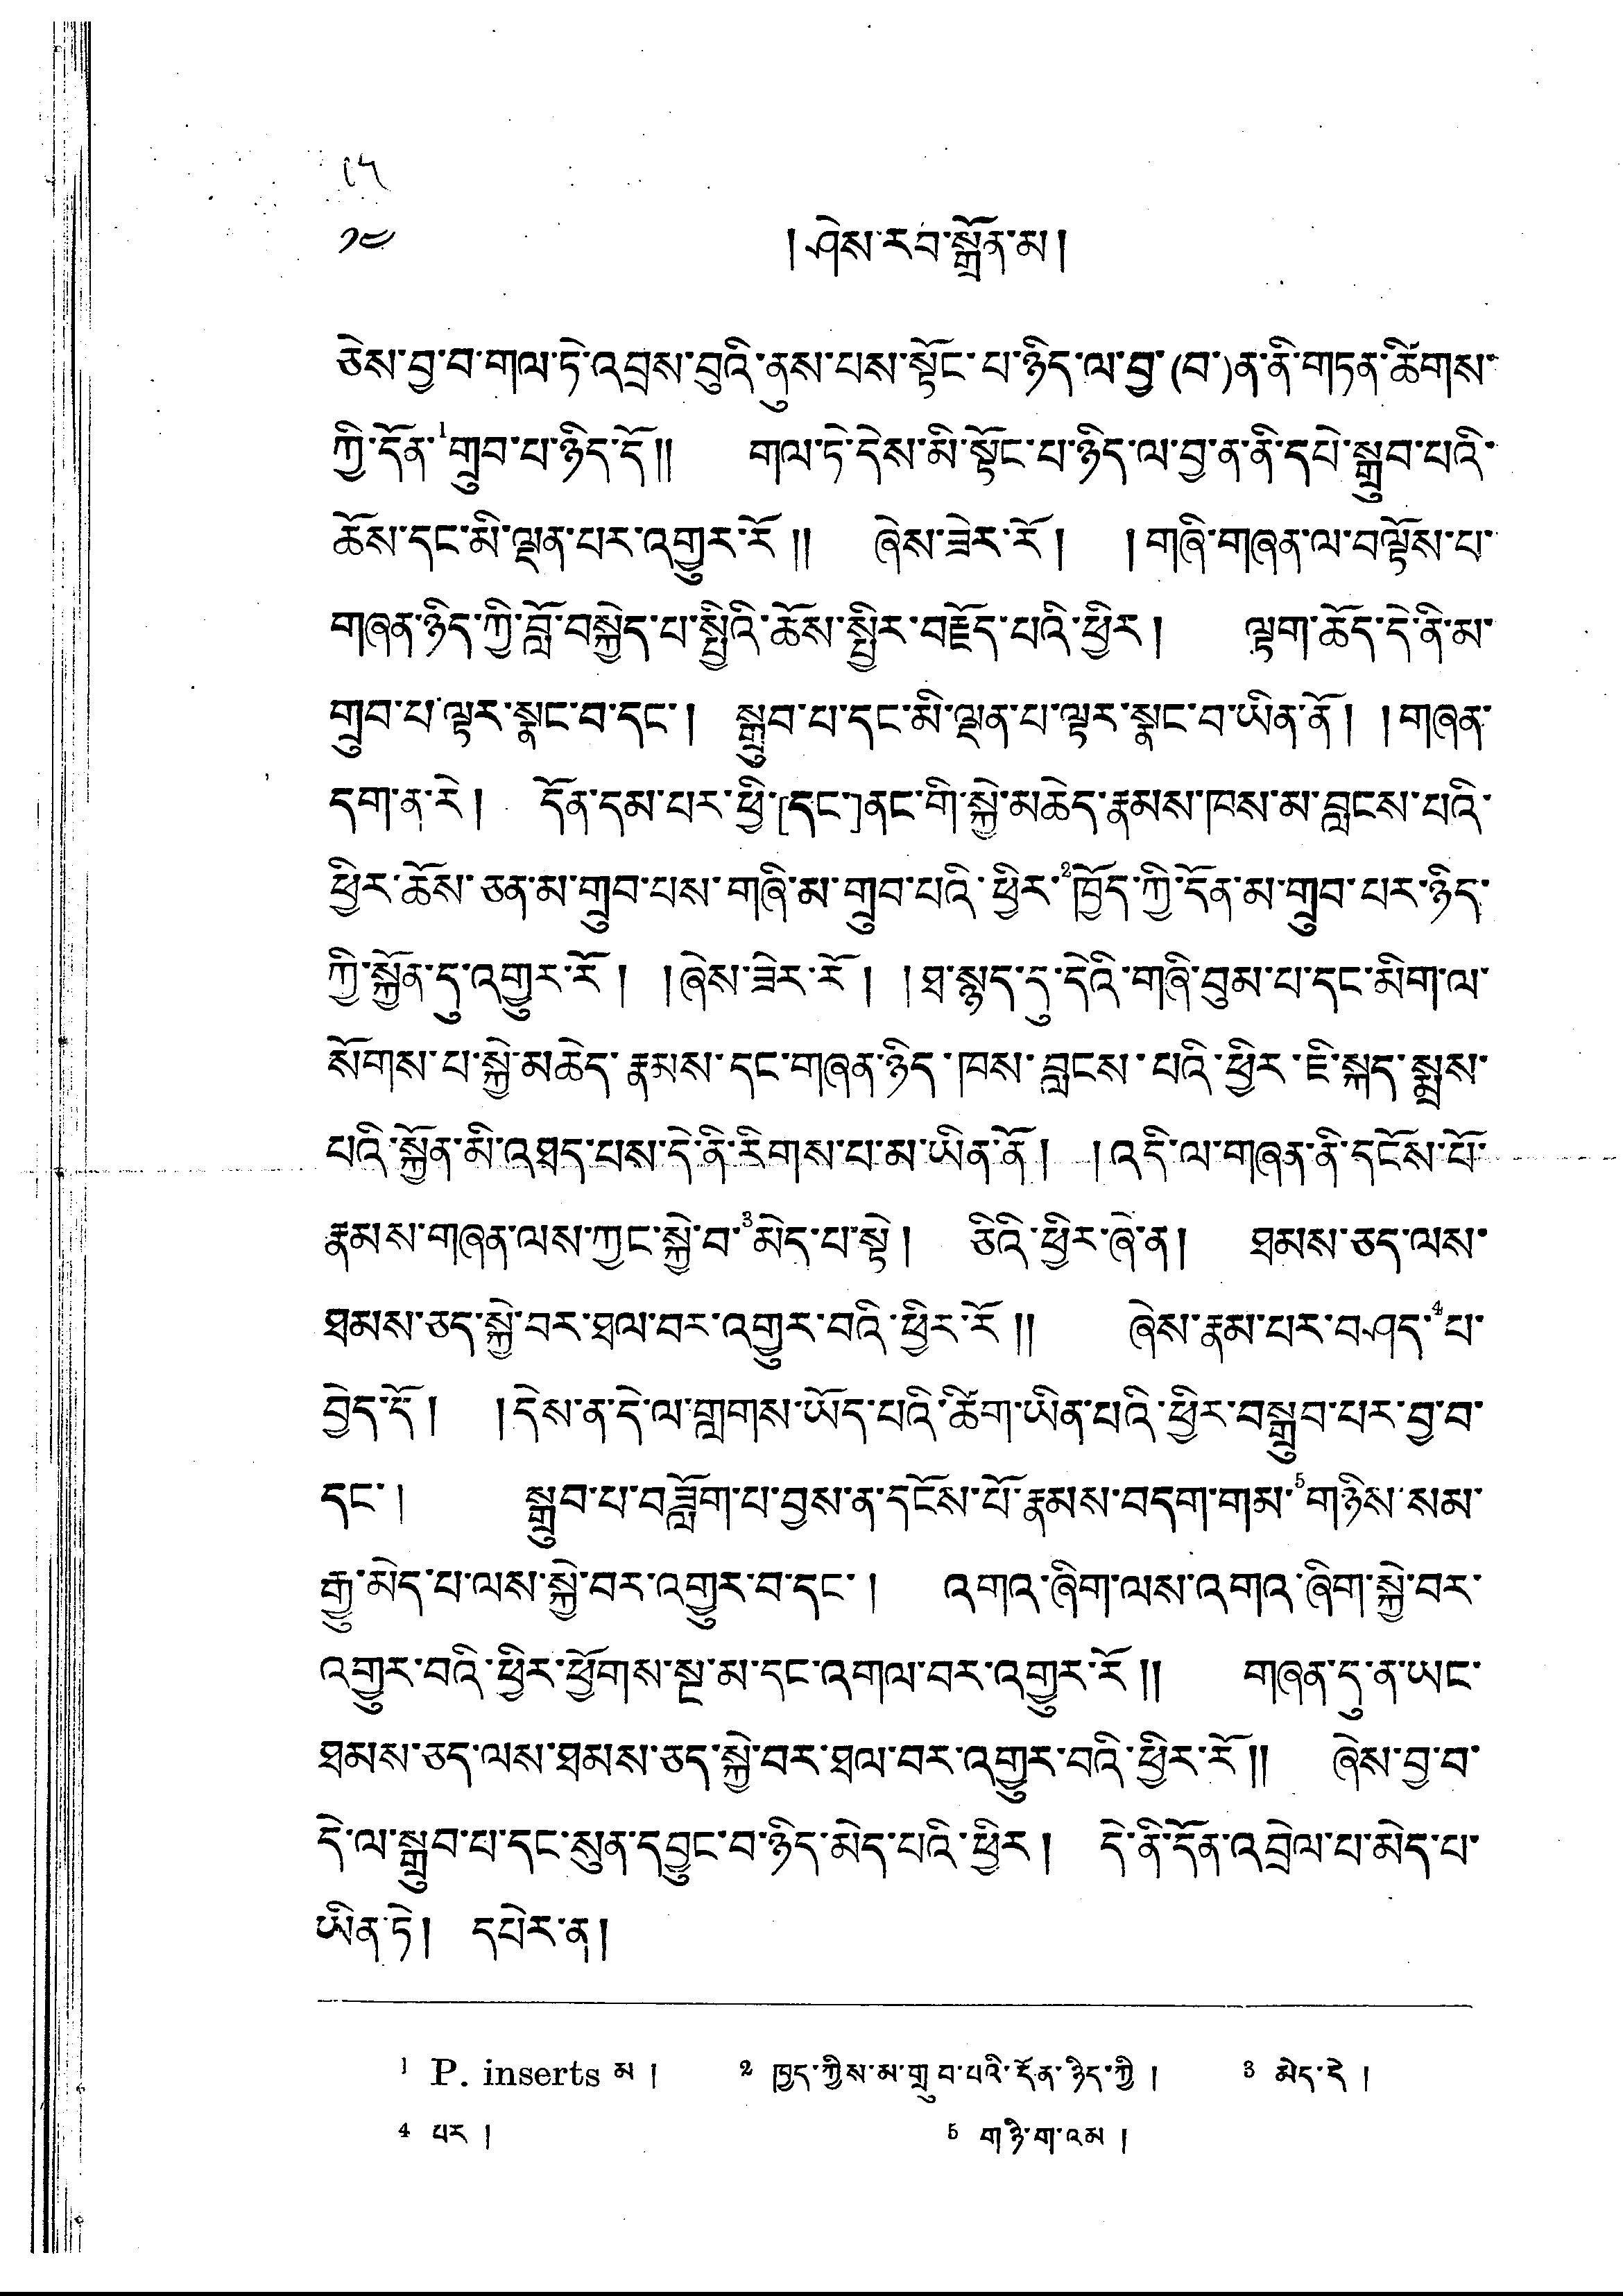 ༡༤ ། ཤེས་རབ་སྒྲོན་མ །
ཅེས་བྱ་བ་གལ་ཏེ་འབྲས་བུའི་ནུས་པས་སྟོང་པ་ཉིད་ལ་བྱ་(བ་)ན་ནི་གཏན་ཚིགས་
ཀྱི་དོན་¹གྲུབ་པ་ཉིད་དོ།། གལ་ཏེ་དེས་མི་སྟོང་པ་ཉིད་ལ་བྱ་ན་ནི་དཔེ་སྒྲུབ་པའི་
ཆོས་དང་མི་ལྡན་པར་འགྱུར་རོ།། ཞེས་ཟེར་རོ། །གཞི་གཞན་ལ་བལྟོས་པ་
གཞན་ཉིད་ཀྱི་བློ་བསྐྱེད་པ་སྤྱིའི་ཆོས་སྤྱིར་བརྗོད་པའི་ཕྱིར། ལྟག་ཆོད་དེ་ནི་མ་
གྲུབ་པ་ལྟར་སྣང་བ་དང་། སྒྲུབ་པ་དང་མི་ལྡན་པ་ལྟར་སྣང་བ་ཡིན་ནོ། །གཞན་
དག་ན་རེ། དོན་དམ་པར་ཕྱི་[དང་]ནང་གི་སྐྱེ་མཆེད་རྣམས་ཁས་མ་བླངས་པའི་
ཕྱིར་ཆོས་ཅན་མ་གྲུབ་པས་གཞི་མ་གྲུབ་པའི་ཕྱིར་²ཁྱོད་ཀྱི་དོན་མ་གྲུབ་པར་ཉིད་
ཀྱི་སྐྱོན་དུ་འགྱུར་རོ། །ཞེས་ཟེར་རོ། །ཐ་སྙད་དུ་དེའི་གཞི་བུམ་པ་དང་མིག་ལ་
སོགས་པ་སྐྱེ་མཆེད་རྣམས་དང་གཞན་ཉིད་ཁས་བླངས་པའི་ཕྱིར་ཇི་སྐད་སྨྲས་
པའི་སྐྱོན་མི་འཐད་པས་དེ་ནི་རིགས་པ་མ་ཡིན་ནོ། །འདི་ལ་གཞན་ནི་དངོས་པོ་
རྣམས་གཞན་ལས་ཀྱང་སྐྱེ་བ་³མེད་པ་སྟེ། ཅིའི་ཕྱིར་ཞེ་ན། ཐམས་ཅད་ལས་
ཐམས་ཅད་སྐྱེ་བར་ཐལ་བར་འགྱུར་བའི་ཕྱིར་རོ།། ཞེས་རྣམ་པར་བཤད་⁴པ་
བྱེད་དོ། །དེས་ན་དེ་ལ་གླགས་ཡོད་པའི་ཚིག་ཡིན་པའི་ཕྱིར་བསྒྲུབ་པར་བྱ་བ་
དང་། སྒྲུབ་པ་བཟློག་པ་བྱས་ན་དངོས་པོ་རྣམས་བདག་གམ་⁵གཉིས་སམ་
རྒྱུ་མེད་པ་ལས་སྐྱེ་བར་འགྱུར་བ་དང་། འགའ་ཞིག་ལས་འགའ་ཞིག་སྐྱེ་བར་
འགྱུར་བའི་ཕྱིར་ཕྱོགས་སྔ་མ་དང་འགལ་བར་འགྱུར་རོ།། གཞན་དུ་ན་ཡང་
ཐམས་ཅད་ལས་ཐམས་ཅད་སྐྱེ་བར་ཐལ་བར་འགྱུར་བའི་ཕྱིར་རོ།། ཞེས་བྱ་བ་
དེ་ལ་སྒྲུབ་པ་དང་སུན་དབྱུང་བ་ཉིད་མེད་པའི་ཕྱིར། དེ་ནི་དོན་འབྲེལ་པ་མེད་པ་
ཡིན་ཏེ། དཔེར་ན།
¹ P. inserts མ། ² ཁྱད་ཀྱིས་མ་གྲུབ་པའི་དོན་ཉིད་ཀྱི། ³ མེད་དེ།
⁴ པར། ⁵ གཉི་ག་འམ།